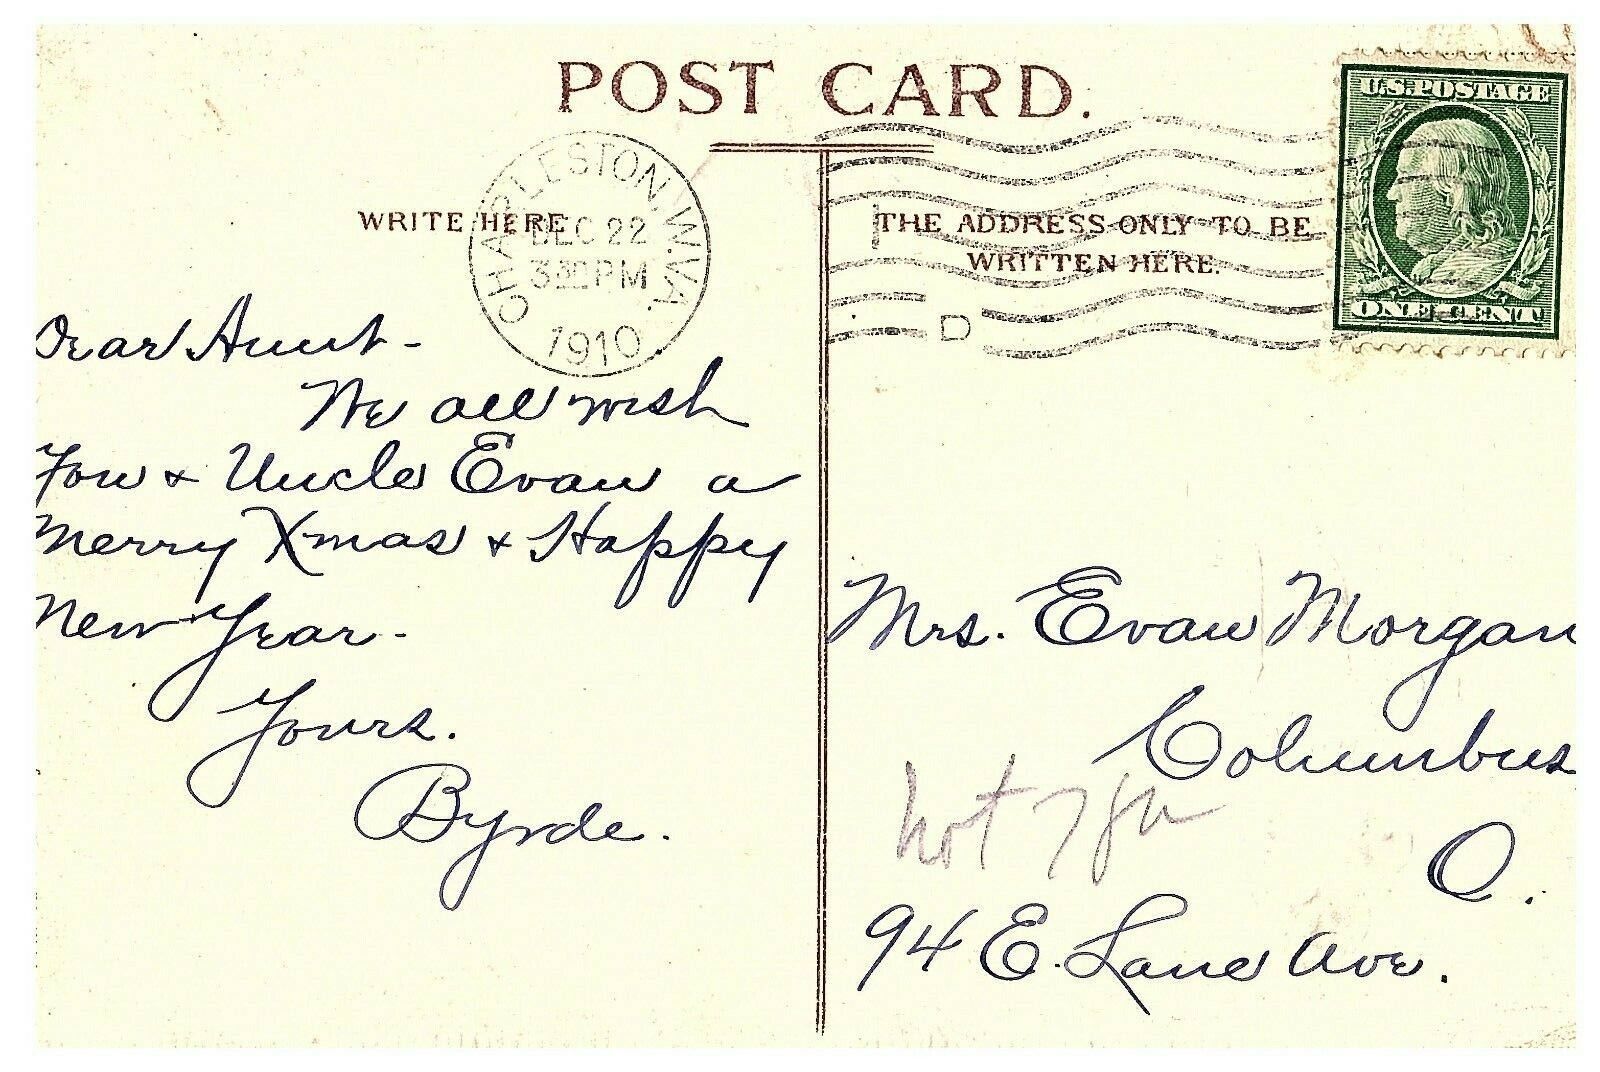 POST CARD.
CHARLESTON, W.VA.
DEC 22
3 30 PM
1910
D
U.S. POSTAGE
ONE CENT
WRITE HERE
THE ADDRESS ONLY TO BE
WRITTEN HERE.
Dear Aunt -
We all wish
You & Uncle Evan a
Merry Xmas & Happy
New Year -
Yours.
Byrde.
Mrs. Evan Morgan
Columbus
O.
94 E. Lane Ave.
not